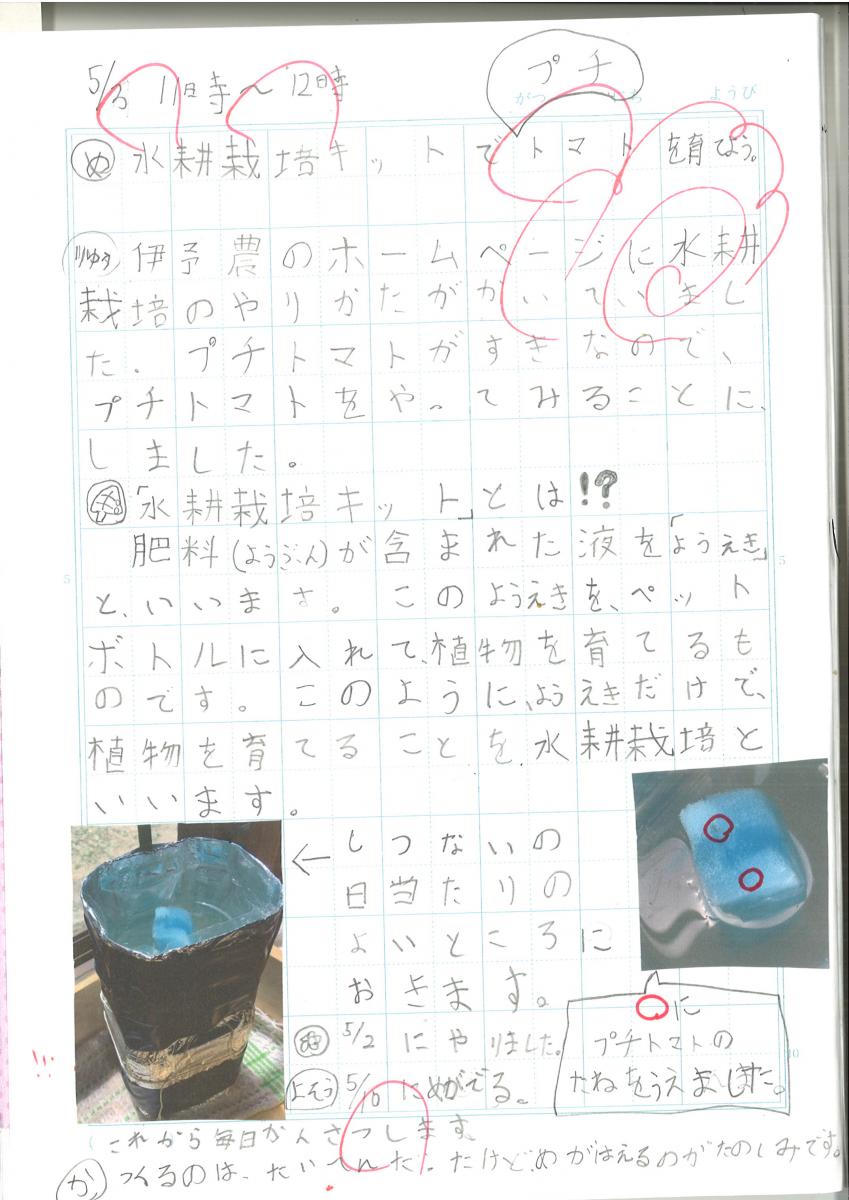 5/3 11時〜12時
プチ
がつ にち ようび
め 水耕栽培キットでトマトを育てよう。
りゆう 伊予農のホームページに水耕
栽培のやりかたがかいていまし
た。プチトマトがすきなので、
プチトマトをやってみることに、
しました。
「水耕栽培キット」とは!?
肥料(ようぶん)が含まれた液を「ようえき」
と、いいます。このようえきを、ペット
ボトルに入れて、植物を育てるも
のです。このように、ようえきだけで、
植物を育てることを、水耕栽培と
いいます。
←しつないの
日当たりの
よいところに
おきます。
5/2にやりました。
よそう 5/10にめがでる。
○に
プチトマトの
たねをうえました。
これから毎日かんさつします
か つくるのは、たいへんだ。だけど、めがはえるのがたのしみです。
5
5
10
!!!